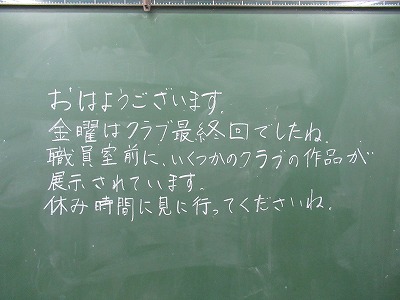 おはようございます。
金曜はクラブ最終回でしたね。
職員室前に、いくつかのクラブの作品が
展示されています。
休み時間に見に行ってくださいね。